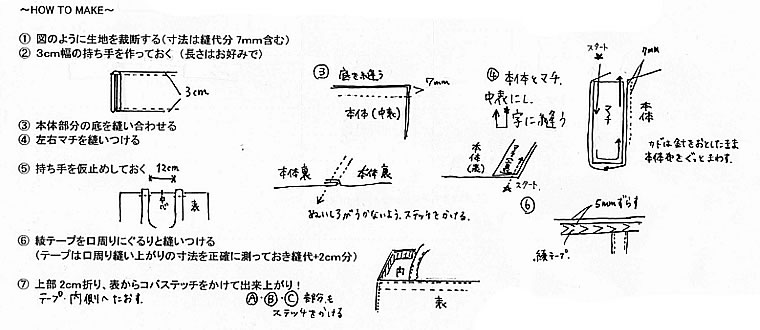 ～HOW TO MAKE～
① 図のように生地を裁断する(寸法は縫代分 7mm含む)
② 3cm幅の持ち手を作っておく (長さはお好みで)
3cm
③ 本体部分の底を縫い合わせる
④ 左右マチを縫いつける
⑤ 持ち手を仮止めしておく
12cm
中心
表
⑥ 綾テープを口周りにぐるりと縫いつける
(テープは口周り縫い上がりの寸法を正確に測っておき縫代+2cm分)
⑦ 上部 2cm折り、表からコバステッチをかけて出来上がり！
テープ・内側へたおす。
Ⓐ・Ⓑ・Ⓒ 部分も
ステッチをかける
③ 底を縫う
7mm
本体(中表)
本体裏
本体裏
ぬいしろがうかないよう、ステッチをかける。
④ 本体とマチ、
中表にし、
字に縫う
本体(表)
スタート
スタート
7mm
マチ
本体
カドは針をおとしたまま
本体布をぐっとまわす。
⑥
5mmずらす
綾テープ
内
表